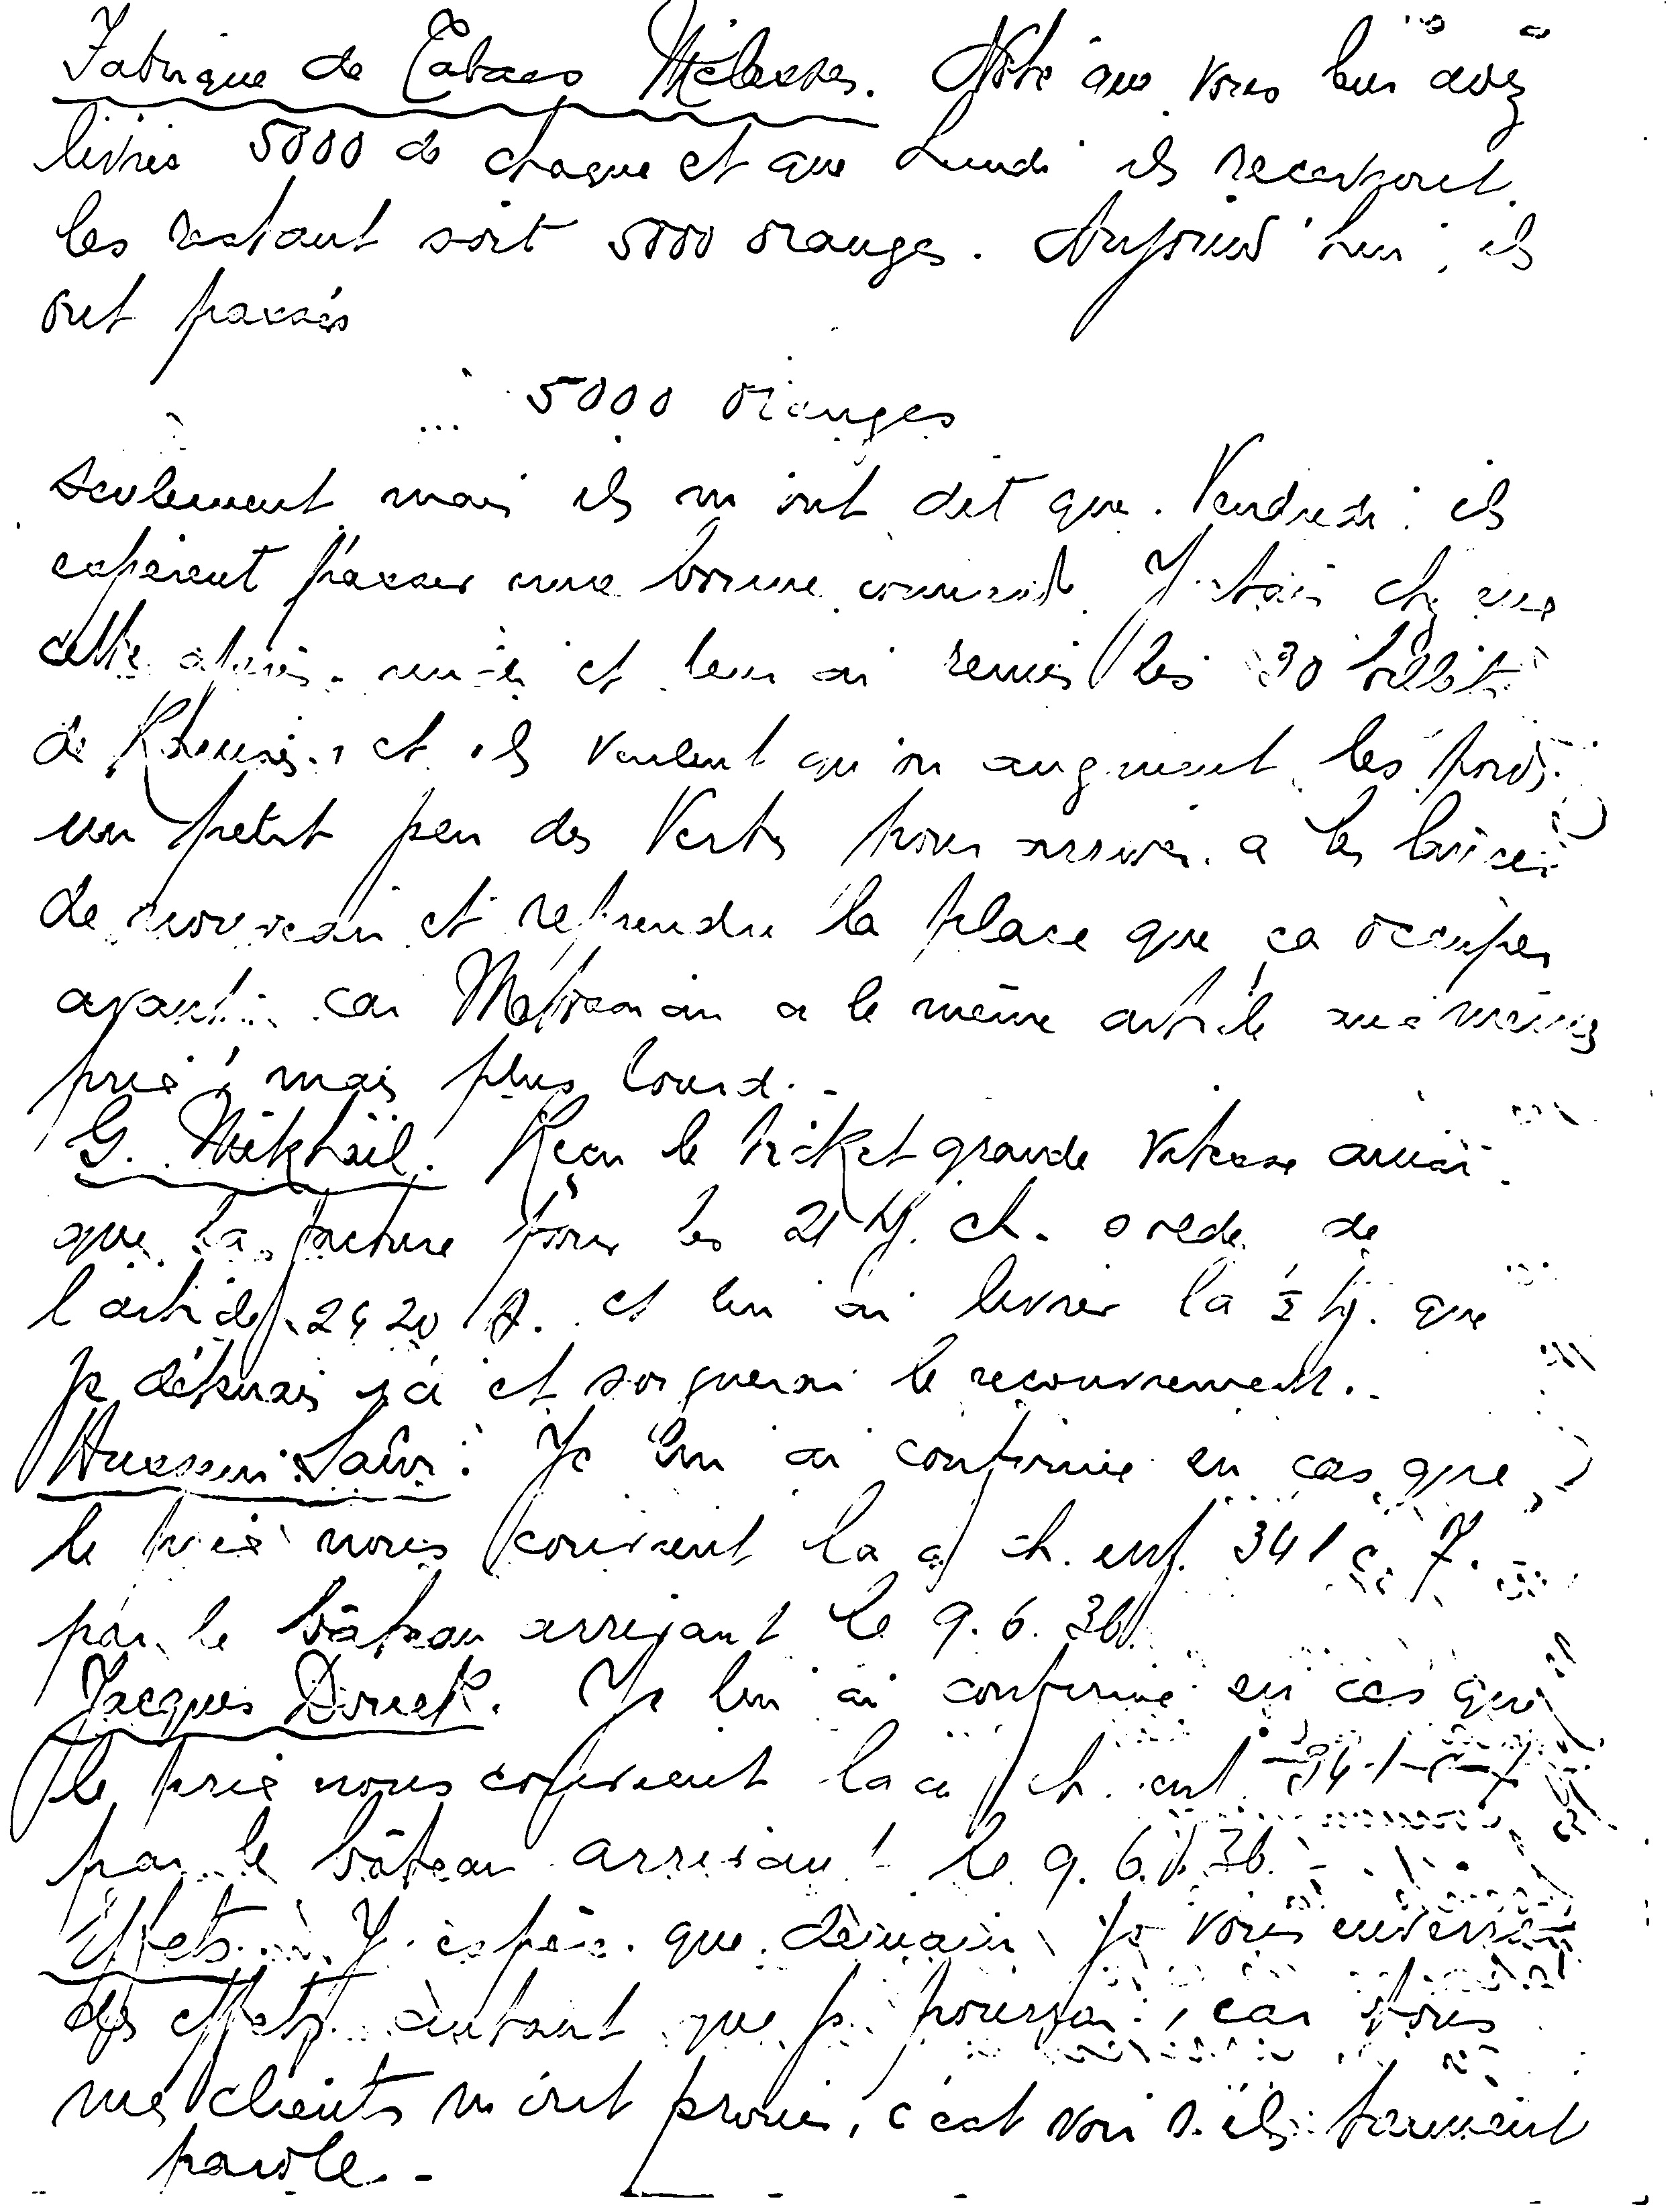 Fabrique de Tabacs Mélasses. Noté que vous leur avez
livrés 5000 de chaque et que Lundi ils
les restant soit 5000 oranges. Aujourd'hui, ils
ont passés
5000 oranges
seulement mais ils m'ont dit que Vendredi ils
espèrent passer une bonne J'étais chez eux
cette après-midi et leur ai remis les 30
de et ils veulent qu'on augment les poids
un petit peu des Verts pour arriver a les lancer
de nouveau et reprendre la place que ça occuper
avant car a le même article aux mêmes
prix, mais plus lourd.-
G. Mikhaïl. Reçu le ticket grande vitesse ainsi
que la facture pour les ch. de
l'article 2420 A. et lui ai livrer la ½ que
je et soignerai le recouvrement.-
Je lui ai confirmé en cas que
le prix nous convient la ch. enf. 341 c. 7.
par le bâteau arrivant le 9.6.36.
Jacques Je lui ai confirmé en cas que
le prix nous convient la ch. enf. 341 c 7
par le bâteau arrivant le 9.6.36.
Effets. J'espère que demain je vous enverrai
des effets autant que je pourrai, car tous
mes clients m'ont promis, c'est voir s'ils tiennent
parole.-